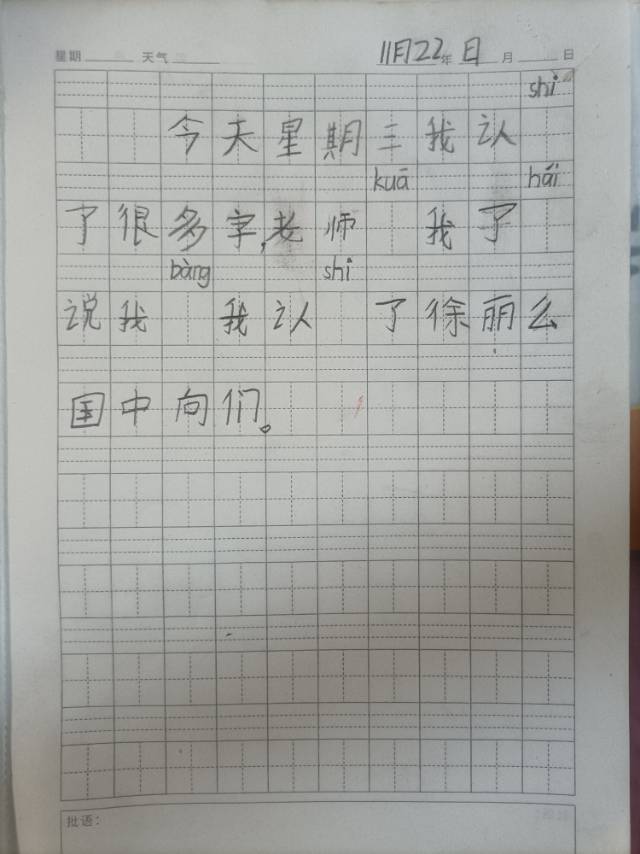 星期 天气 11月22年日 月 日
shi
今天星期三我认
kuā hái
了很多字,老师 我了
bàng shi
说我 我认 了徐丽么
国中向们。
批语: